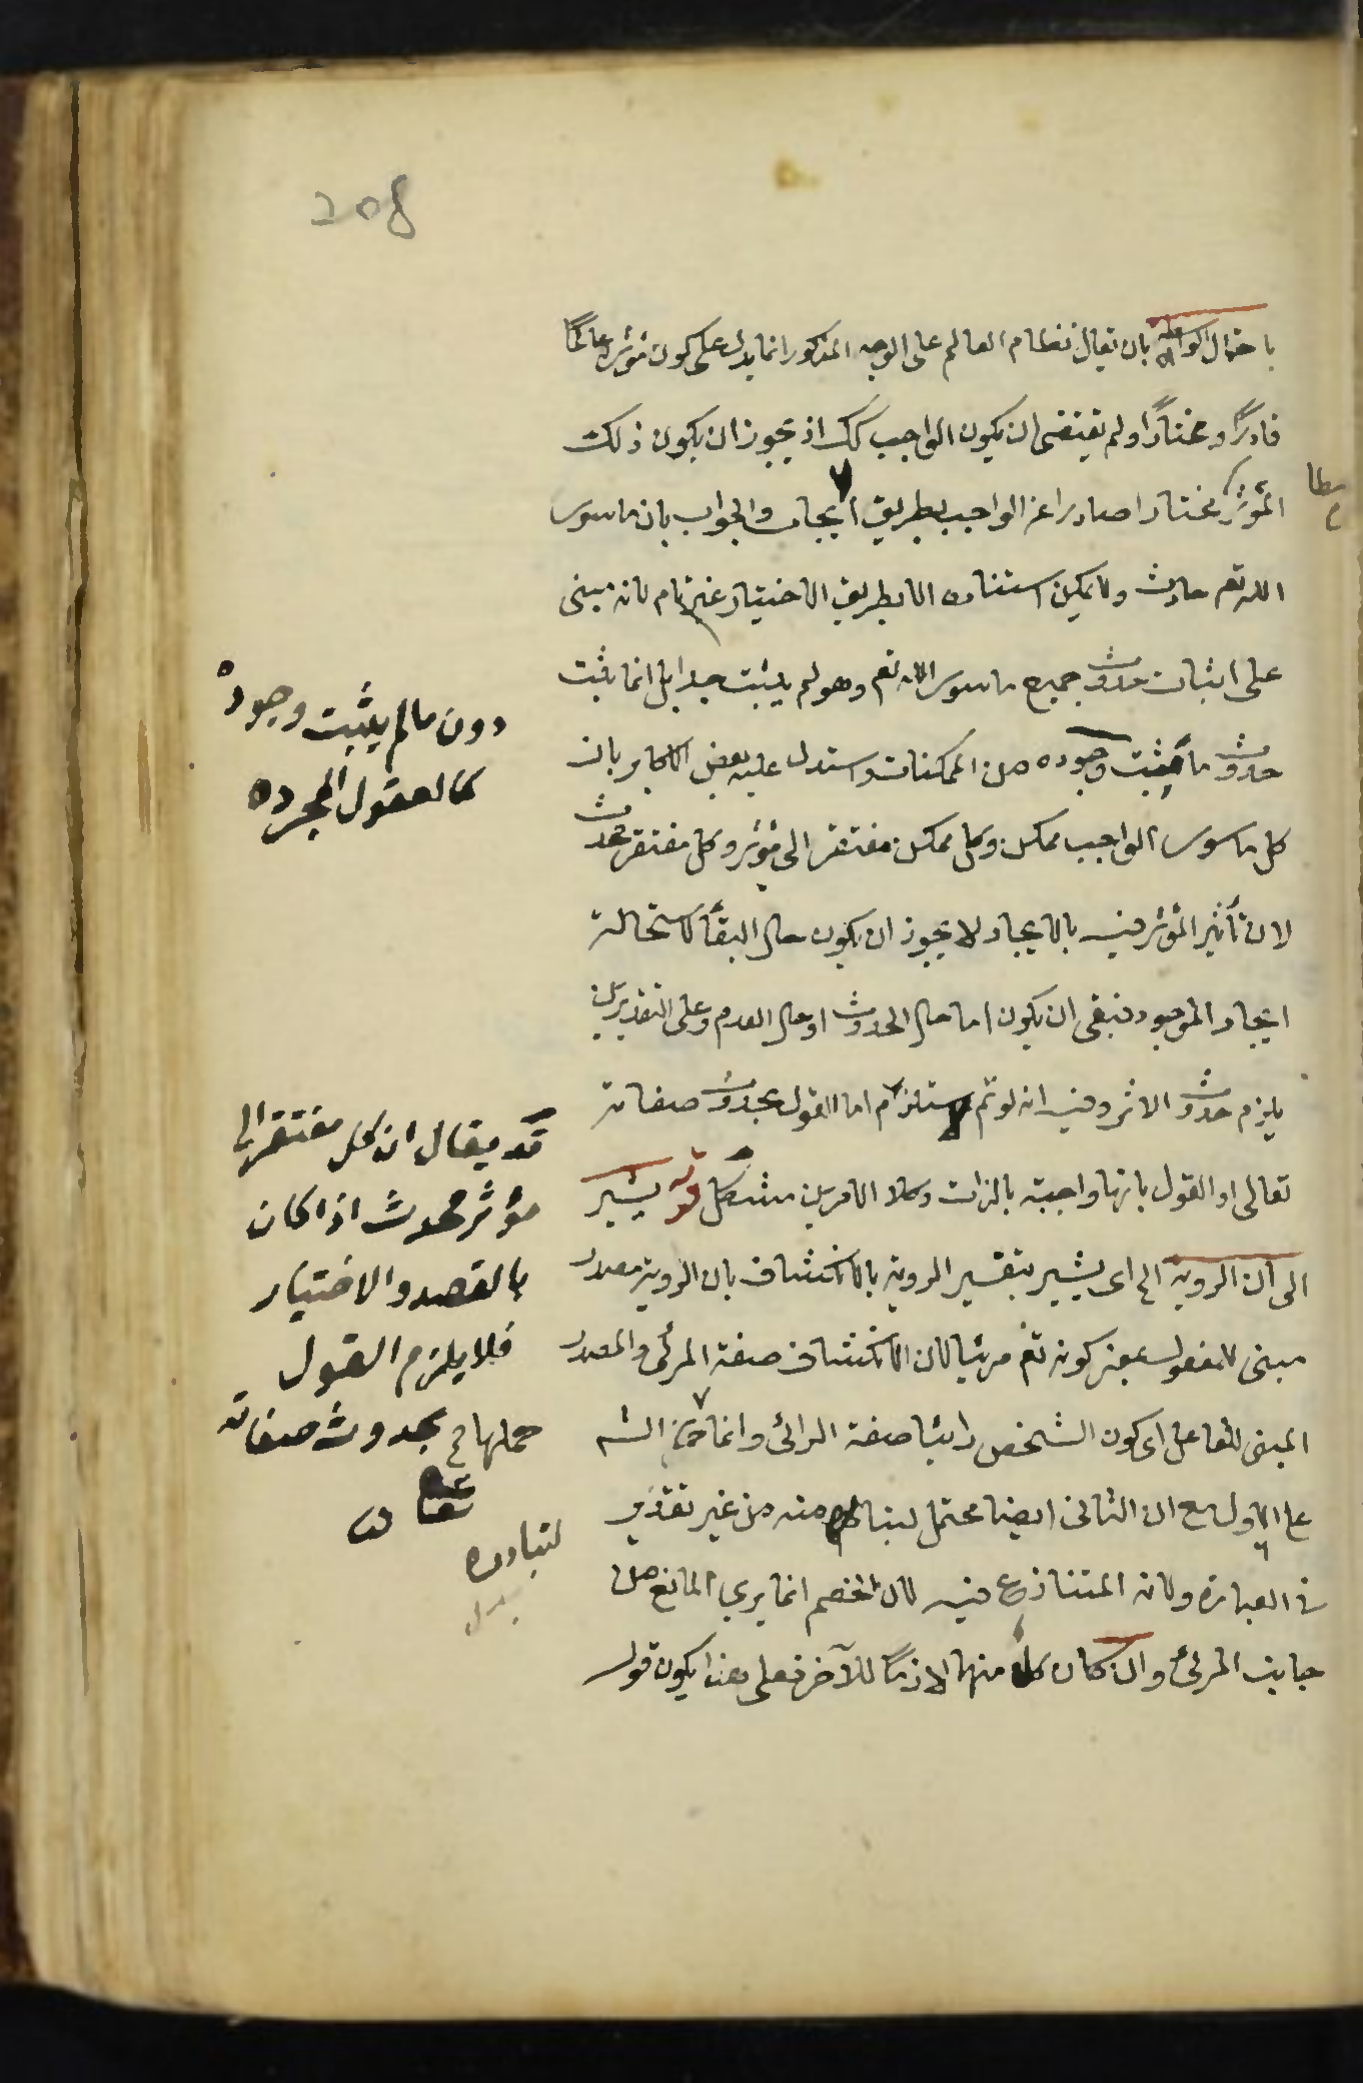 208
باحتمال الواسطة بان يقال نظام العالم على الوجه المذكور انما يدل على كون مؤثره عالمًا
قادرًا ومختارًا ولم يقتضى ان يكون الواجب كك اذ يجوز ان يكون ذلك
المؤثر مختارا صادرا عن الواجب بطريق الايجاب والجواب بان ما سوى
الله تعم حادث ولا يمكن استناده الا بطريق الاختيار غير تام لانه مبنى
على اثبات حدوث جميع ما سوى الله تعم وهو لم يثبت بل انما يثبت
حدوث ما يثبت وجوده من الممكنات واستدل عليه بعض الاكابر بان
كل ما سوى الواجب ممكن وكل ممكن مفتقر الى مؤثر وكل مفتقر محدث
لان تأثير المؤثر فيه بالايجاد لا يجوز ان يكون حال البقأ لاستحالة
ايجاد الموجود فبقى ان يكون اما حال الحدوث او حال العدم وعلى التقديرين
يلزم حدوث الاثر وفيه انه لو تم يستلزم اما القول بحدوث صفاته
تعالى او القول بانها واجبة بالذات وكلا الامرين مشكل قوله يشير
الى ان الروية الخ اى يشير بتفسير الروية بالانكشاف بان الروية مصدر
مبنى للمفعول بمعنى كونه تعم مرئيا لان الانكشاف صفة المرئى والمصدر
المبنى للفاعل اى كون الشخص رائيا صفة الرائى وانما الشم
على الاول مع ان الثانى ايضا محتمل منه من غير تقدير
فى العبارة ولانه المتنازع فيه لان الخصم انما يرى المانع من
جانب المرئى وان كان كل منها لازمًا للآخر فعلى هذا يكون قوله
دون ما لم يثبت وجوده
كالعقول المجرده
قد يقال ان كل مفتقر الى
مؤثر محدث اذا كان
بالقصد والاختيار
فلا يلزم القول
بحدوث صفاته
تعالى
حملها
لتبادره